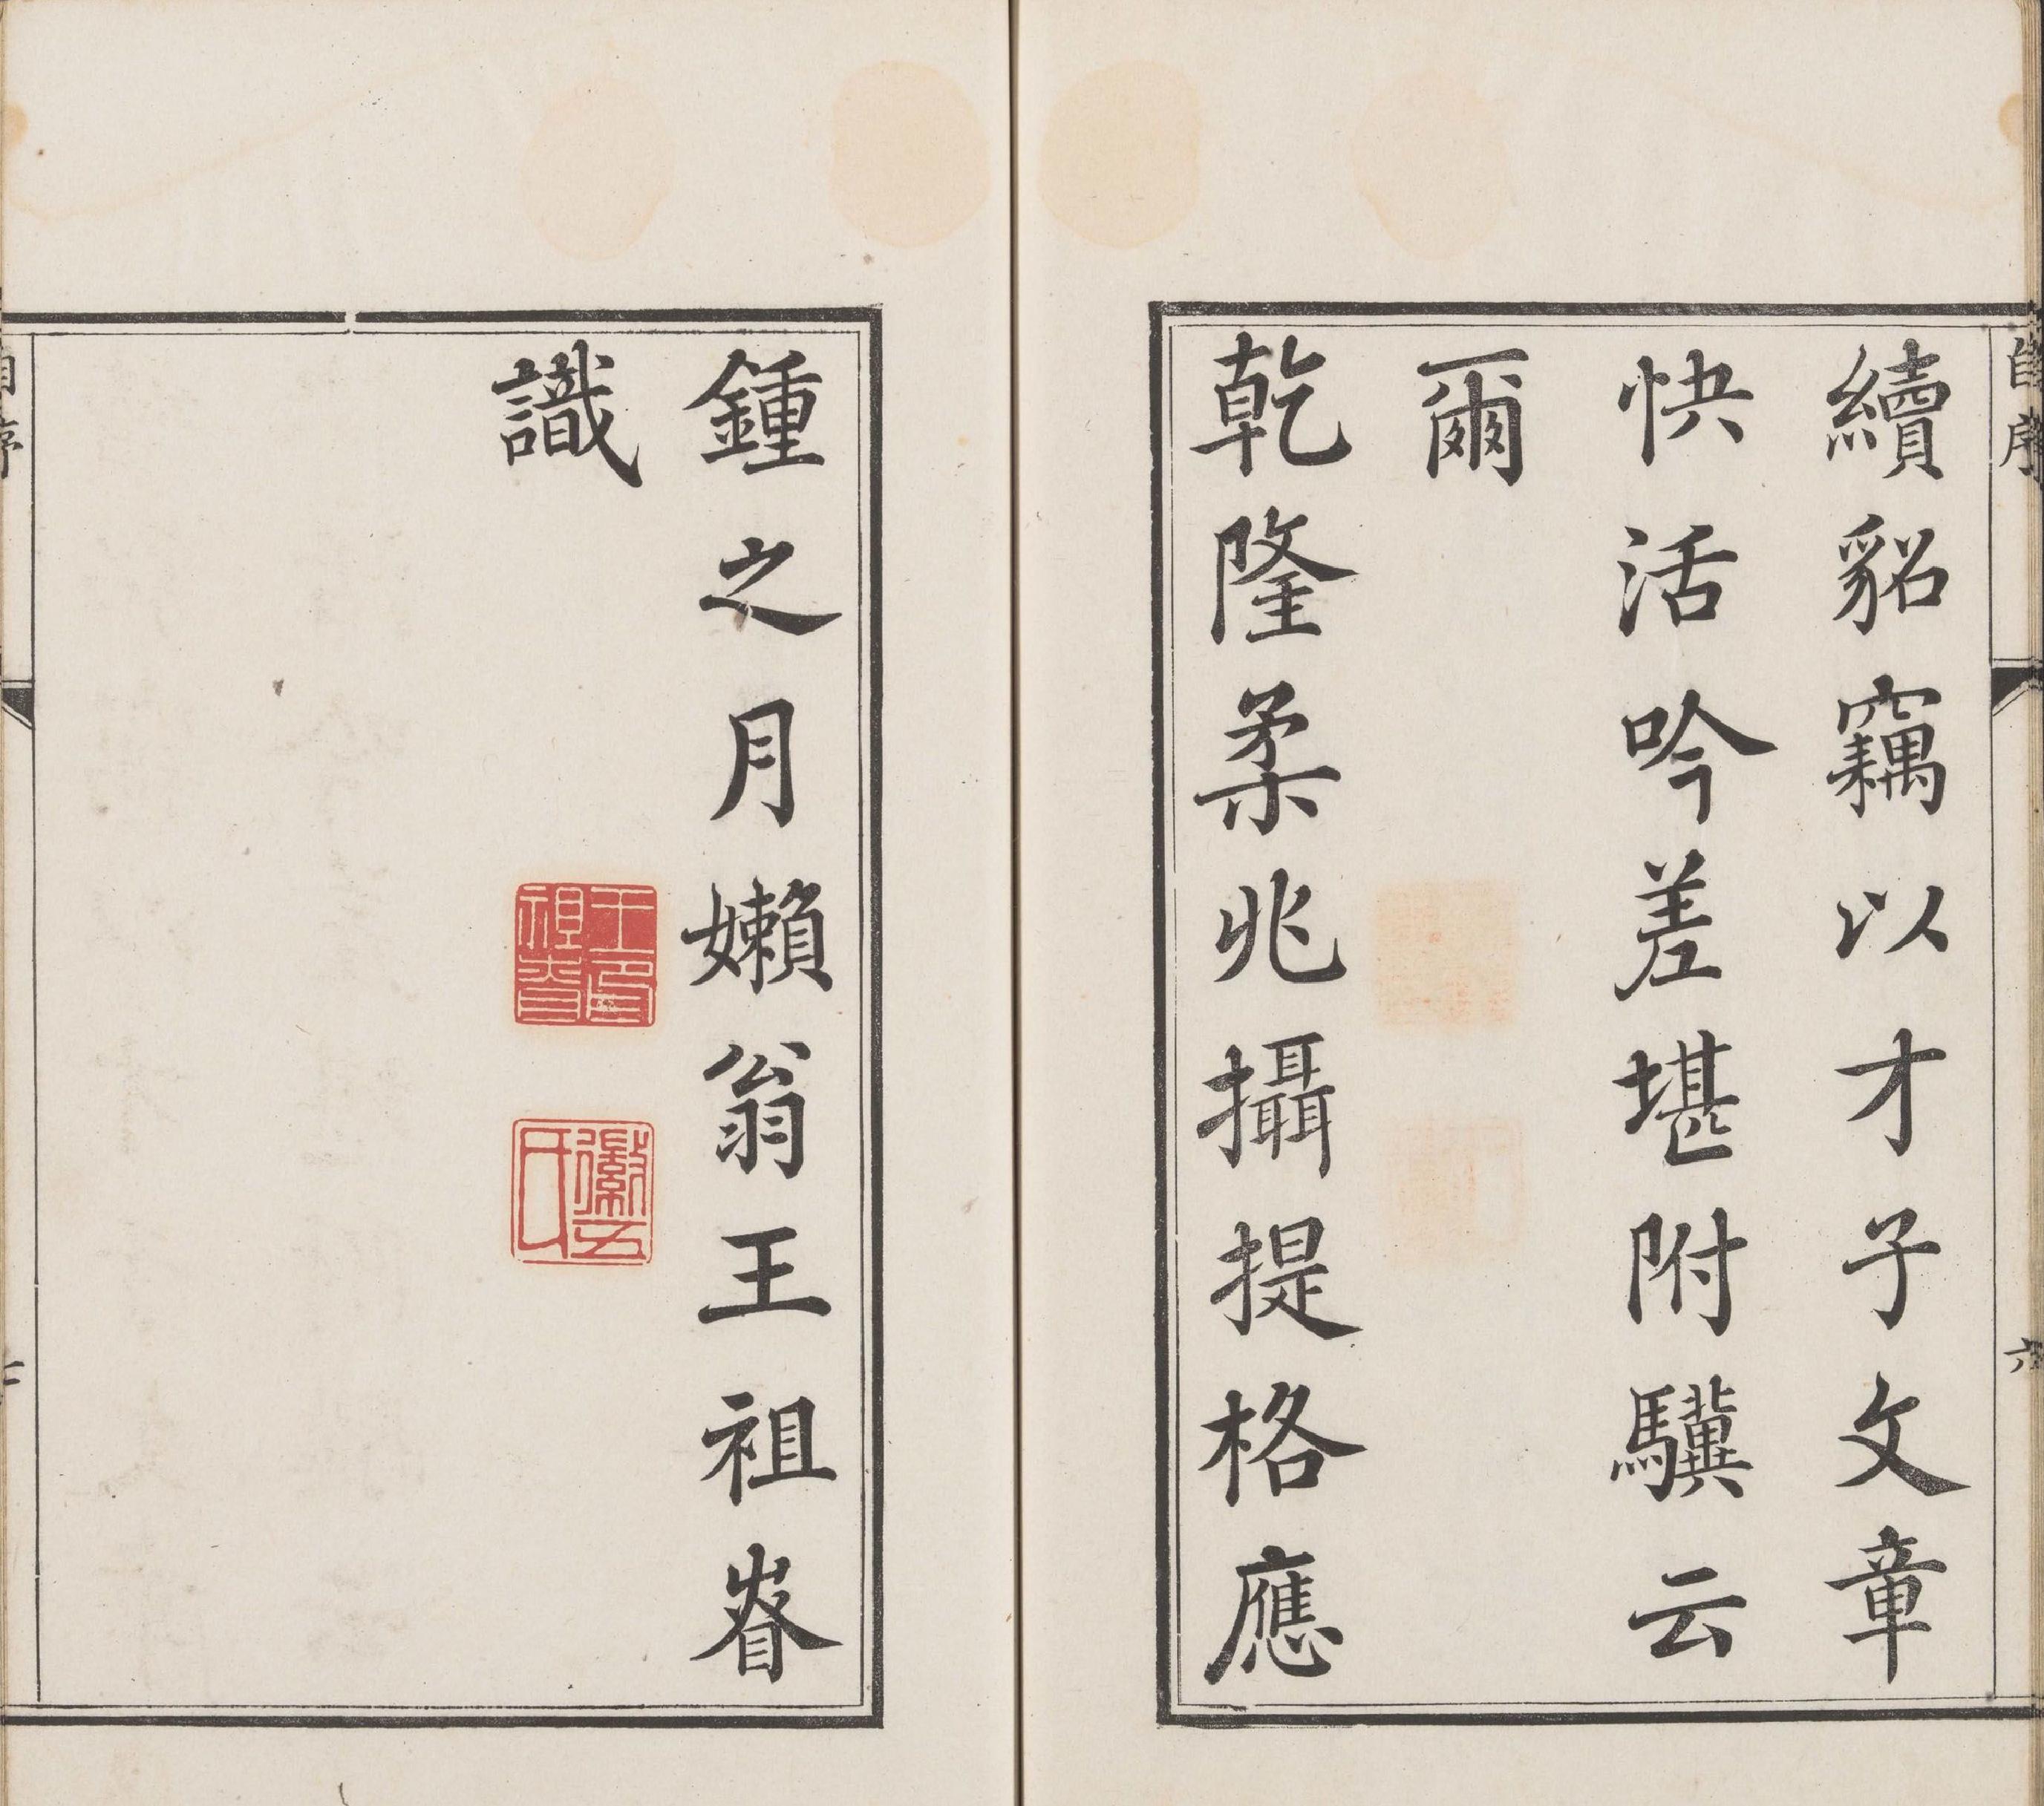 自序
六
續貂竊以才子文章
快活吟差堪附驥云
爾
乾隆柔兆攝提格應
鍾之月嬾翁王祖眘
識
王印祖眘
徽五氏
自序
七